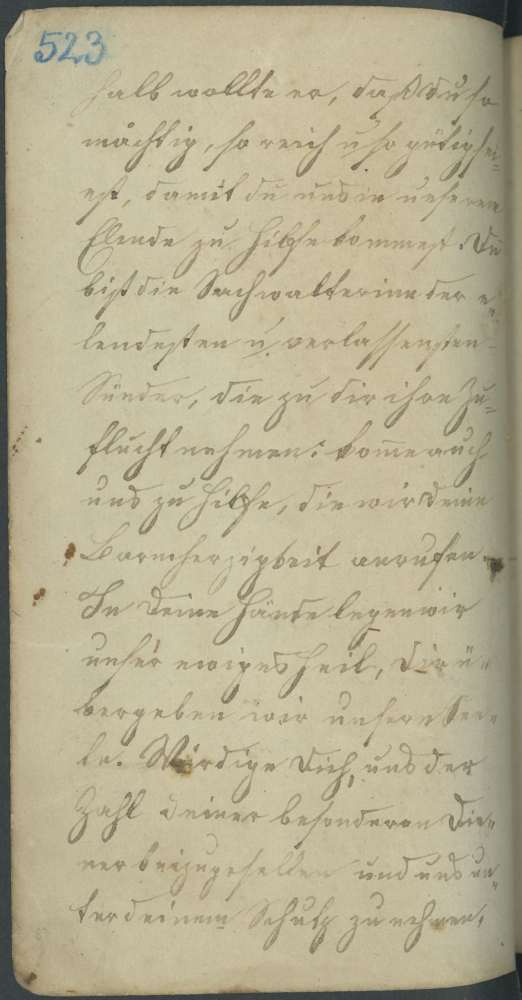 523
halb wollte er, daß du so
mächtig, so reich u so gütig sei=
est, damit du uns in unserem
Elende zu Hilfe kommest. Du
bist die Sachwalterinn der e=
lendesten u. verlassensten
Sünder, die zu dir ihre Zu=
flucht nehmen: kom̄e auch
uns zu Hilfe, die wir deine
Barmherzigkeit anrufen.
In Deine Hände legen wir
unser ewiges Heil, Dir ü=
bergeben wir unsere See=
le. Würdige Dich, uns der
Zahl deiner besonderen Die=
ner beizugesellen und uns un=
ter deinem Schutz zu nehmen,